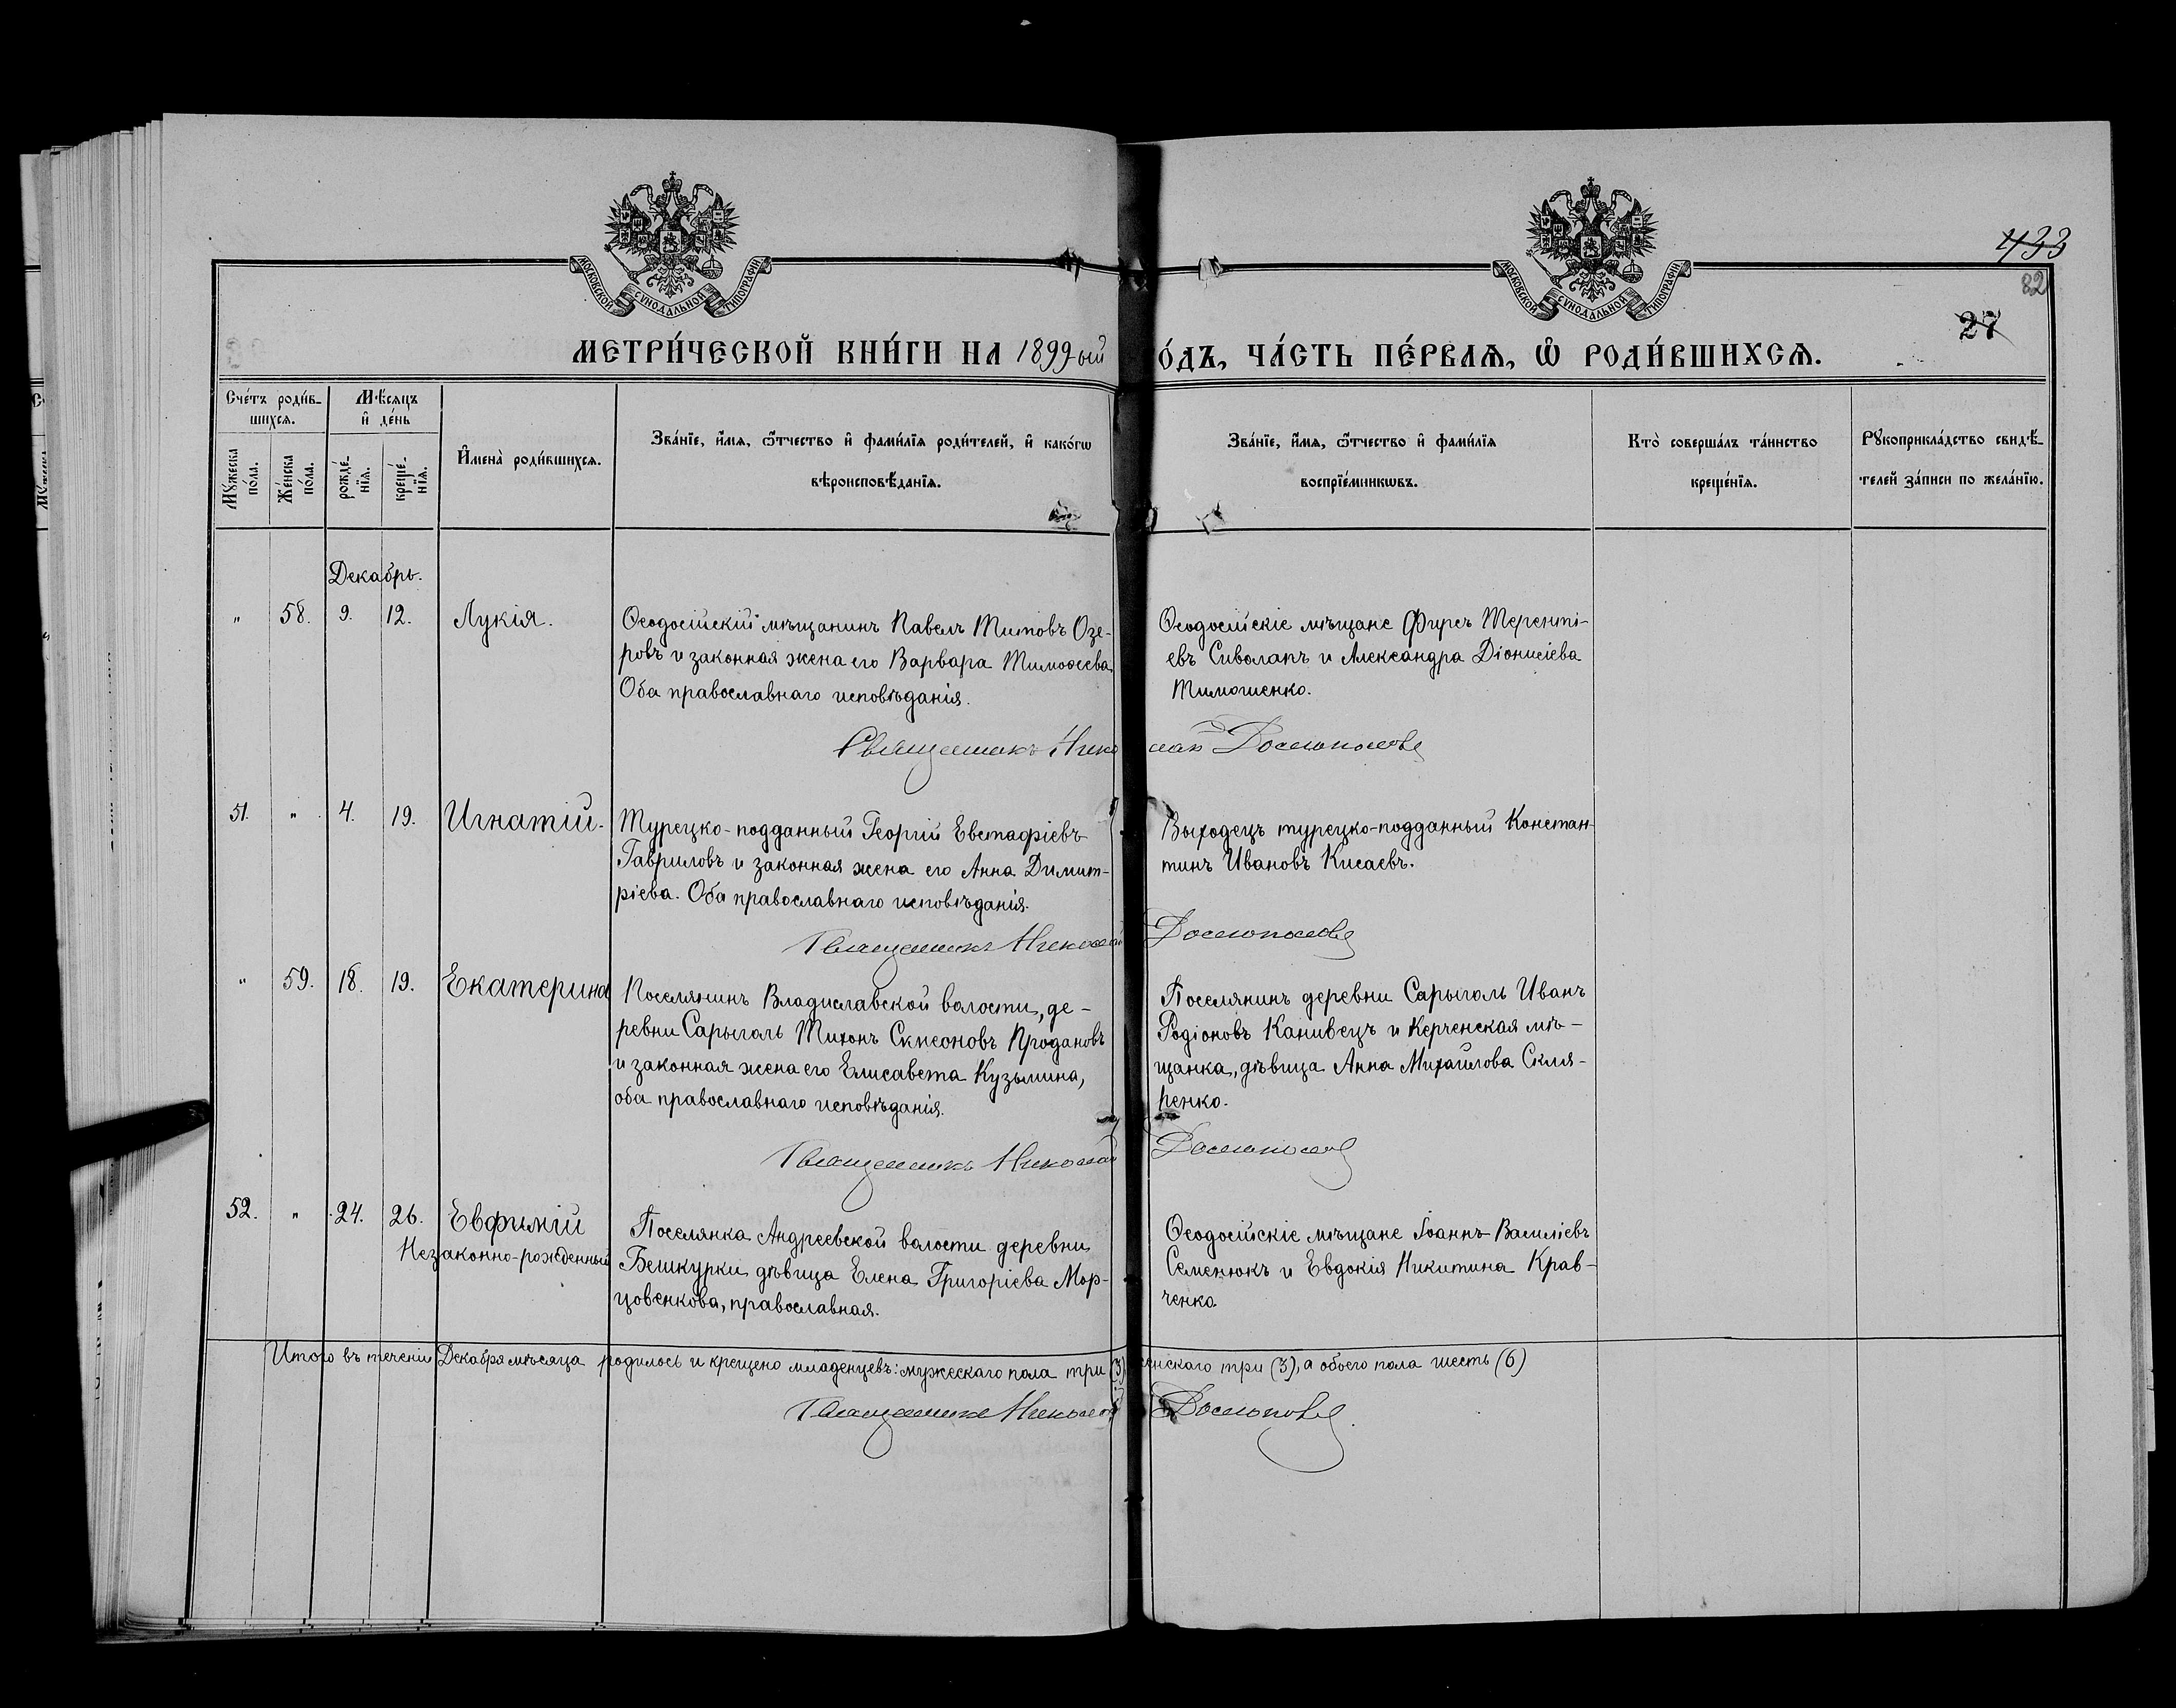 МОСКОВСКОЙ СѴНОДАЛЬНОЙ ТИПОГРАФІИ
МОСКОВСКОЙ СѴНОДАЛЬНОЙ ТИПОГРАФІИ
433
82
27
МЕТРИ́ЧЕСКОЙ КНИ́ГИ НА 1899-ый
О́ДЪ, ЧА́СТЬ ПЕ́РВАѦ, Ѡ РОДИ́ВШИХСѦ.
Сче́тъ роди́в-
шихсѧ.
Мѣ́сѧцъ
и҆ де́нь
Мꙋ́жеска
по́ла.
Же́нска
по́ла.
рожде́-
нїѧ.
креще́-
нїѧ.
И҆мена̀ роди́вшихсѧ.
Зва́нїе, и҆́мѧ, ѻ҆́тчество и҆ фами́лїѧ роди́телей, и҆ како́гѡ
вѣроисповѣ́данїѧ.
Зва́нїе, и҆́мѧ, ѻ҆́тчество и҆ фами́лїѧ
воспрїе́мникѡвъ.
Кто̀ соверша́лъ та́инство
креще́нїѧ.
Рꙋкоприкла́дство свидѣ́-
телей за́писи по жела́нїю.
Декабрь.
" 58. 9. 12. Лукія.
Ѳеодосійскій мѣщанинъ Павелъ Титовъ Озе-
ровъ и законная жена его Варвара Тимоѳеева.
Оба православнаго исповѣданія.
Ѳеодосійскіе мѣщане Фирсъ Теренті-
евъ Сиволапъ и Александра Діонисіева
Тимошенко.
Священникъ Николай
51. " 4. 19. Игнатій.
Турецко-подданный Георгій Евстафіевъ
Гавриловъ и законная жена его Анна Димит-
ріева. Оба православнаго исповѣданія.
Выходецъ турецко-подданный Констан-
тинъ Ивановъ Кисаевъ.
Священникъ Николай
" 59. 18. 19. Екатерина
Поселянинъ Владиславской волости, де-
ревни Сарыголь Тихонъ Симеоновъ Продановъ
и законная жена его Елисавета Кузьмина,
оба православнаго исповѣданія.
Поселянинъ деревни Сарыголь Иванъ
Родіоновъ Канивецъ и Керченская мѣ-
щанка, дѣвица Анна Михайлова Скля-
ренко.
Священникъ Николай
52. " 24. 26. Евфимій
Незаконно-рожденный
Поселянка Андреевской волости деревни
Бешкурки дѣвица Елена Григоріева Мор-
цовенкова, православная.
Ѳеодосійскіе мѣщане Іоаннъ Василіевъ
Семенюкъ и Евдокія Никитина Крав-
ченко.
Итого въ теченіи Декабря мѣсяца родилось и крещено младенцевъ: мужескаго пола три (3) женскаго три (3), а обоего пола шесть (6)
Священникъ Николай